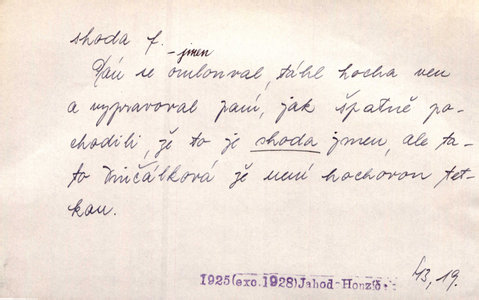 shoda f. – jmen
Pán se omlouval, táhl hocha ven
a vypravoval paní, jak špatně po-
chodili, že to je shoda jmen, ale ta-
to Vinčálková že není hochovou tet-
kou.
1925(exc.1928)Jahod-Honzló.: 43, 19.